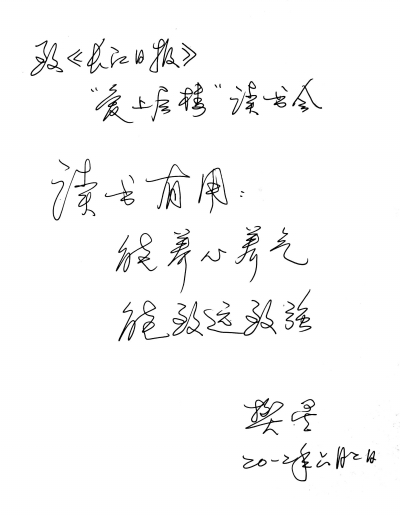 致《长江日报》
“爱上层楼”读书会
读书有用：
能养心养气
能致远致强
樊星
二〇一二年六月二日